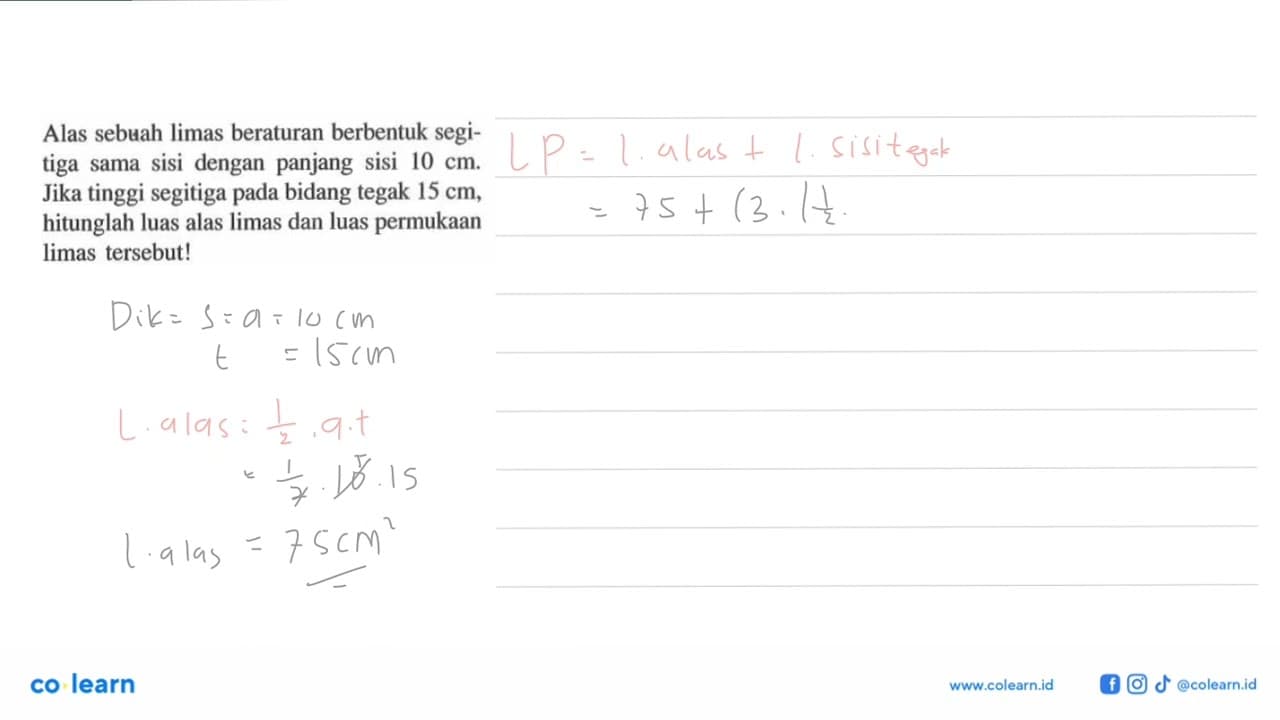 Alas sebuah limas beraturan berbentuk segi-
tiga sama sisi dengan panjang sisi 10 cm.
Jika tinggi segitiga pada bidang tegak 15 cm,
hitunglah luas alas limas dan luas permukaan
limas tersebut!
Dik = s = a = 10 cm
t = 15 cm
L. alas = 1/2 . a.t
= 1/2 . 10 5 . 15
l. alas = 75 cm²
LP = l. alas + l. sisi tegak
= 75 + (3 . (1/2 .
co learn
www.colearn.id
@colearn.id